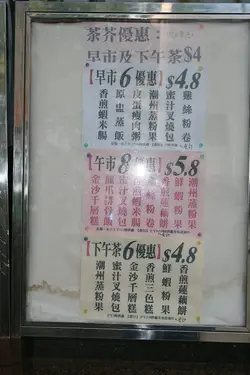 茶芥優惠:
早市及下午茶$4
【早市6優惠】$4.8
雞絲粉卷
蜜汁叉燒包
潮州蒸粉果
皮蛋瘦肉粥
原盅蒸飯
香煎蝦米腸
【午市8優惠】$5.8
潮州蒸粉果
鮮蝦粉果
香煎蓮藕餅
蜜汁叉燒包
金沙千層糕
【下午茶6優惠】$4.8
香煎蓮藕餅
鮮蝦粉果
香煎三色糕
金沙千層糕
蜜汁叉燒包
潮州蒸粉果